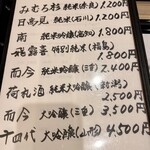 みむろ杉 純米(奈良) 1.200
日高見 純米(石川) 1.200
南 純米吟醸(高知) 1.800
飛露喜 特別純米(福島) 1.800
而今 純米吟醸(三重) 2.400
荷札酒 純米大吟醸 2.500
而今 大吟醸(三重) 3.500
十四代 大吟醸(山形) 4.500円